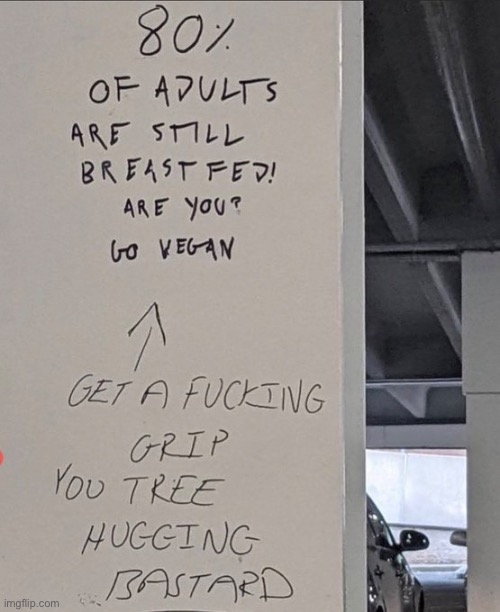 80%
OF ADULTS
ARE STILL
BREASTFED!
ARE YOU?
GO VEGAN
GET A FUCKING
GRIP
YOU TREE
HUGGING
BASTARD
imgflip.com